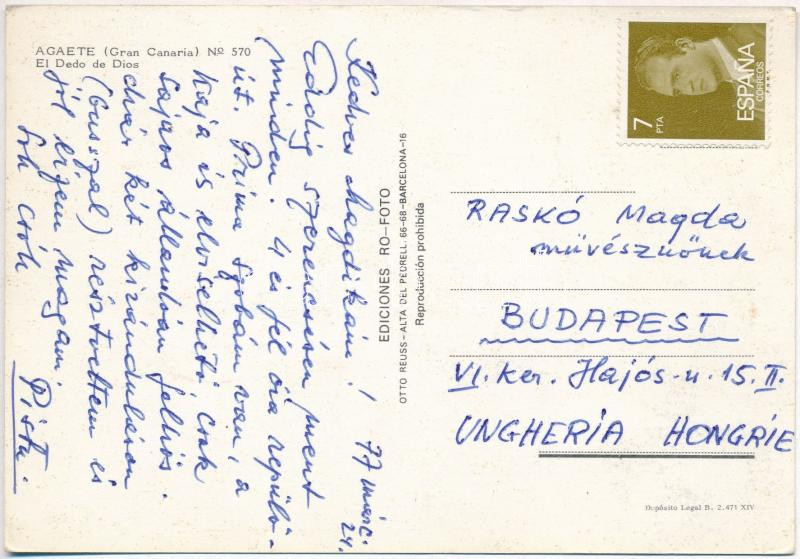 AGAETE (Gran Canaria) Nº 570
El Dedo de Dios
Kedves Magdikám! 77 márc.
24.
Eddig szerencsésen ment
minden. 4 és fél óra repülő-
út. Príma szobám van, a
kaja is elviselhető. Csak
sajnos állandóan felhős.
már két kiránduláson
(busszal) résztvettem és
jól érzem magam.
Sok csók
Pista.
EDICIONES RO-FOTO
OTTO REUSS-ALTA DEL PEDRELL. 66-68-BARCELONA-16
Reproducción prohibida
7
PTA
ESPAÑA
CORREOS
RASKÓ Magda
művésznőnek
BUDAPEST
VI. ker. Hajós-u. 15. II.
UNGHERIA HONGRIE
Depósito Legal B. 2.471 XIV